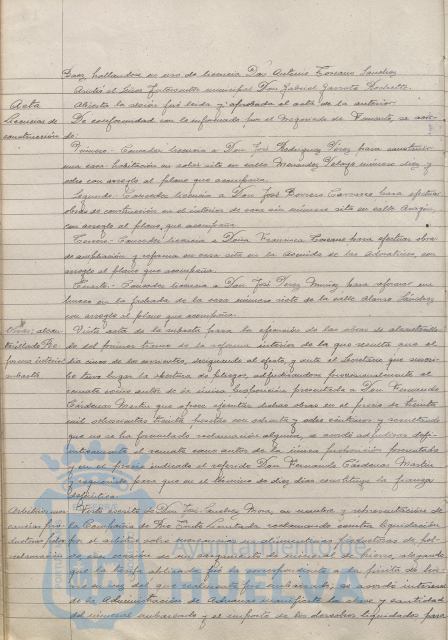 Baez hallandose en uso de licencia Don Antonio Toscano Sanchez
Asistió el Señor Interventor municipal Don Gabriel Garrote
Acta
Abierta la sesión fué leida y aprobada el acta de la anterior.
Licencias de
construcción
De conformidad con lo informado por el Negociado de Fomento, se acor-
dó:
Primero.- Conceder licencia a Don José Rodriguez Perez para construir
una casa habitación en solar sito en calle Menendez Pelayo número diez y
ocho con arreglo al plano que acompaña.
Segundo.- Conceder licencia a Don José Borrero Carrasco para efectuar
obras de construcción en el interior de casa sin número sita en calle Aragón,
con arreglo al plano que acompaña.
Tercero.- Conceder licencia a Doña Francisca para efectuar obras
de ampliación y reforma en casa sita en la Avenida de las Adoratrices, con
arreglo al plano que acompaña.
Cuarto.- Conceder licencia a Don José Perez Muñoz para reformar un
hueco en la fachada de la casa número siete de la calle Alonso Sanchez
con arreglo al plano que acompaña.
Obras: alcan-
tarillado Re-
forma interior
subasta
Vista acta de la subasta para la ejecución de las obras de alcantarilla-
do del primer tramo de la reforma interior de la que resulta que el
dia cinco de los corrientes, designado al efecto, y ante el Secretario que suscri-
be tuvo lugar la apertura de pliegos, adjudicandose provisionalmente el
remate como autor de la única proposición presentada a Don Fernando
Cárdenas Martin que ofrece ejecutar dichas obras en el precio de
mil ochocientas treinta pesetas con ochenta y ocho céntimos y resultando
que no se ha formulado reclamación alguna, se acordó adjudicar defi-
nitivamente el remate como autor de la única proposición presentada
y en el precio indicado al referido Don Fernando Cárdenas Martin
y requerirle para que en el término de diez dias constituya la fianza
definitiva.
Arbitrios
Visto escrito de Don José Sanchez Mora, en nombre y representación de
la Compañía de Rio Tinto Limitada reclamando contra liquidación
por el arbitrio sobre mercancias no alimenticias productoras de pol-
vo
que la tarifa aplicada fué la correspondiente a la pirita de hie-
rro en vez del que realmente fué embarcado, se acordó interesar
de la Administración de Aduanas manifieste la clase y cantidad
del mineral embarcado y el importe de los derechos liquidados para
Ayuntamiento de
HUELVA